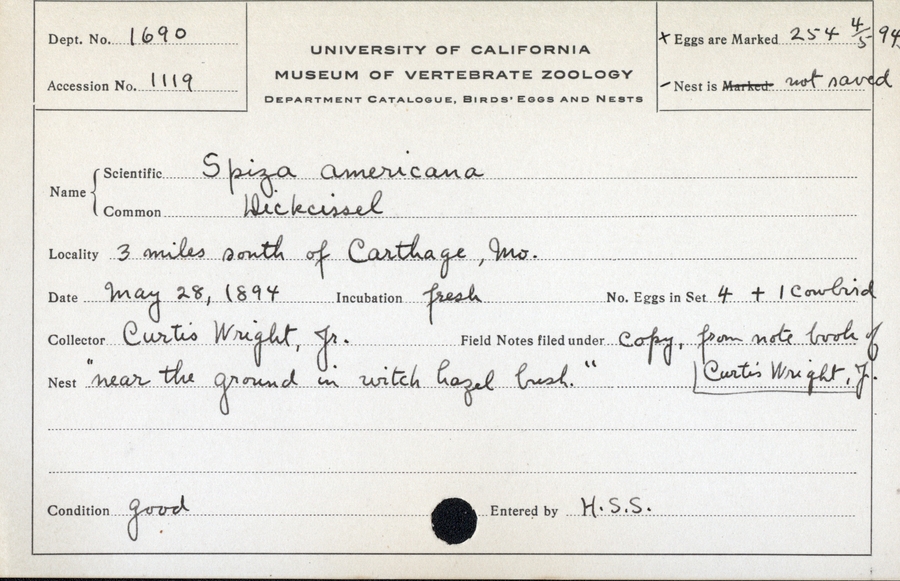 Dept. No. 1690
Accession No. 1119
UNIVERSITY OF CALIFORNIA
MUSEUM OF VERTEBRATE ZOOLOGY
DEPARTMENT CATALOGUE, BIRDS' EGGS AND NESTS
x Eggs are Marked 254 4/5 94
- Nest is Marked not saved
Name
Scientific Spiza americana
Common Dickcissel
Locality 3 miles south of Carthage, Mo.
Date May 28, 1894 Incubation fresh No. Eggs in Set 4 + 1 Cowbird
Collector Curtis Wright, Jr. Field Notes filed under copy, from note book of
Nest "near the ground in witch hazel bush." Curtis Wright, Jr.
Condition good Entered by H.S.S.